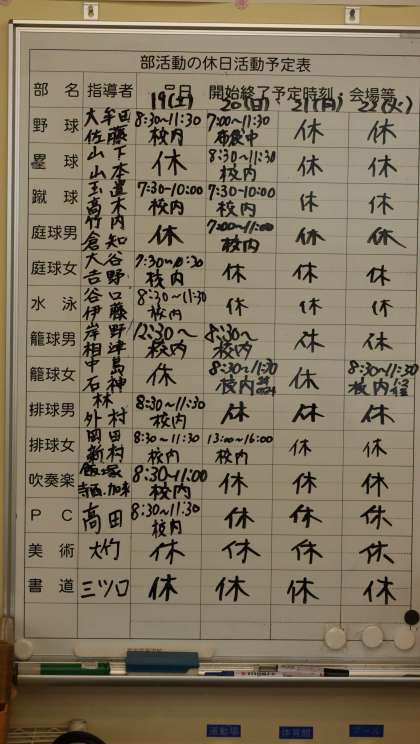 部活動の休日活動予定表
部 名 指導者 曜日 開始終了予定時刻・会場等
19(土) 20(日) 21(月) 23(火)
野 球 大牟田 8:30~11:30 7:00~11:30 休 休
佐藤 校内
塁 球 山下 休 8:30~11:30 休 休
山本 校内
蹴 球 玉置 7:30~10:00 7:30~10:00 休 休
高木 校内 校内
庭球男 竹内 休 7:00~11:00 休 休
倉知 校内
庭球女 大谷 7:30~10:30 休 休 休
吉野 校内
水 泳 谷口 8:30~11:30 休 休 休
伊藤 校内
籠球男 岸野 12:30~ 8:30~ 休 休
相津 校内 校内
籠球女 中島 休 8:30~11:30 休 8:30~11:30
石神 校内 校内
排球男 林 8:30~11:30 休 休 休
外村 校内
排球女 岡田 8:30~11:30 13:00~16:00 休 休
新村 校内 校内
吹奏楽 飯塚 8:30~11:00 休 休 休
寺西.加米 校内
PC 高田 8:30~11:30 休 休 休
校内
美 術 大竹 休 休 休 休
書 道 三ツ口 休 休 休 休
運動場 体育館 プール